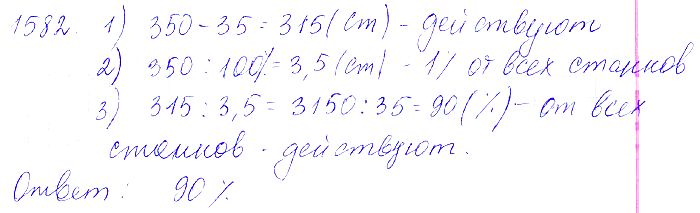 1582. 1) 350 - 35 = 315 (ст) - действуют
2) 350 : 100% = 3,5 (ст) - 1% от всех станков
3) 315 : 3,5 = 3150 : 35 = 90 (%) - от всех
станков - действуют.
Ответ: 90 %